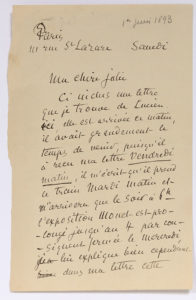 1er juin 1893
Paris
111 rue St Lazare Samedi
Ma chère
Ci inclus une lettre
que je trouve de Lucien
elle est arrivée ce matin,
il avait grandement le
temps de venir, puisqu'il
a reçu ma lettre Vendredi
matin, il m'écrit qu'il prend
le train Mardi Matin et
n'arrivera que le soir à
l'exposition Monet est pro-
longé jusqu'au 4 par con-
séquent fermée le Mercredi
lui explique bien cependant
dans ma lettre cette